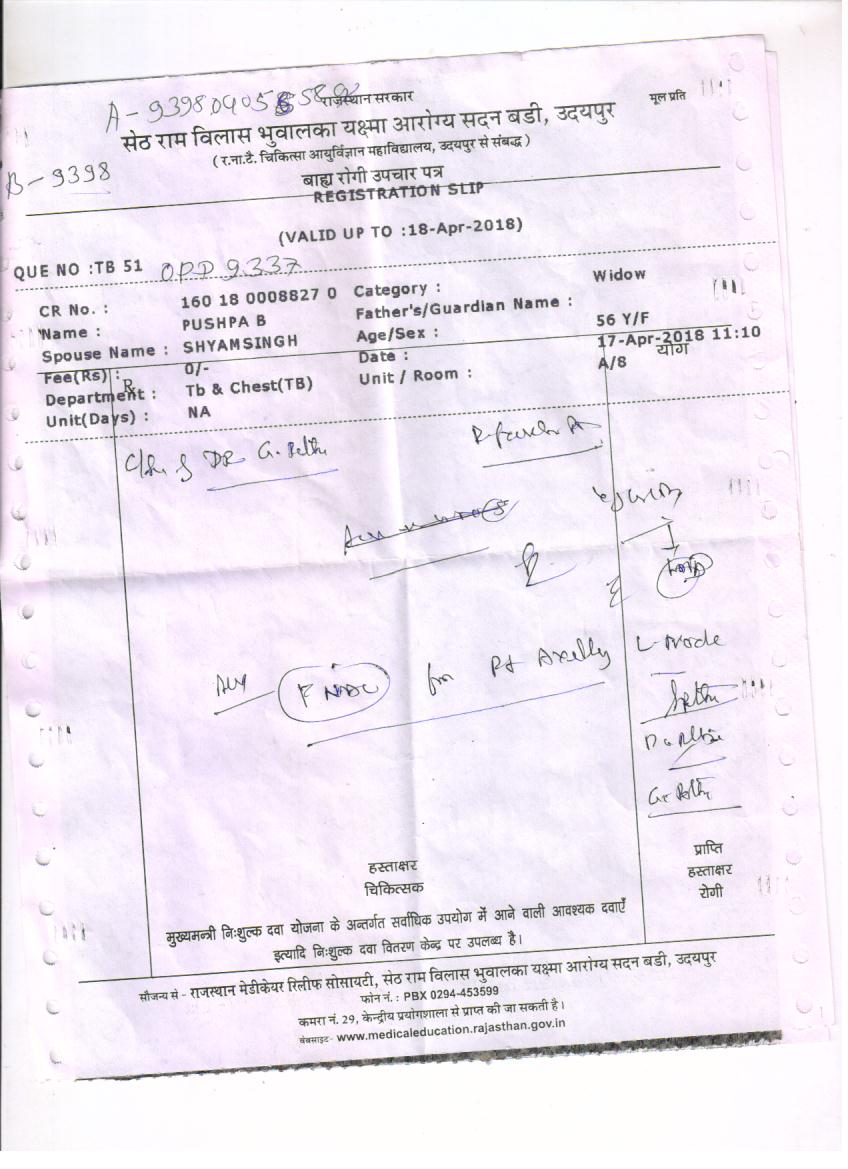 A - 93980405
राजस्थान सरकार
मूल प्रति
सेठ राम विलास भुवालका यक्ष्मा आरोग्य सदन बडी, उदयपुर
( र.ना.टै. चिकित्सा आयुर्विज्ञान महाविद्यालय, उदयपुर से संबद्ध )
B - 9398
बाह्य रोगी उपचार पत्र
REGISTRATION SLIP
(VALID UP TO :18-Apr-2018)
QUE NO :TB 51 OPD 9337
CR No. : 160 18 0008827 0 Category : Widow
Name : PUSHPA B Father's/Guardian Name :
Spouse Name : SHYAMSINGH Age/Sex : 56 Y/F
Fee(Rs) : 0/- Date : 17-Apr-2018 11:10
योग
Department : Tb & Chest(TB) Unit / Room : A/8
Rx
Unit(Days) : NA
DR G.
for Axillary L-Node
प्राप्ति
हस्ताक्षर
हस्ताक्षर
चिकित्सक
रोगी
मुख्यमन्त्री निःशुल्क दवा योजना के अन्तर्गत सर्वाधिक उपयोग में आने वाली आवश्यक दवाएँ
इत्यादि निःशुल्क दवा वितरण केन्द्र पर उपलब्ध है।
सौजन्य से - राजस्थान मेडीकेयर रिलीफ सोसायटी, सेठ राम विलास भुवालका यक्ष्मा आरोग्य सदन बडी, उदयपुर
फोन नं. : PBX 0294-453599
कमरा नं. 29, केन्द्रीय प्रयोगशाला से प्राप्त की जा सकती है।
वेबसाइट- www.medicaleducation.rajasthan.gov.in